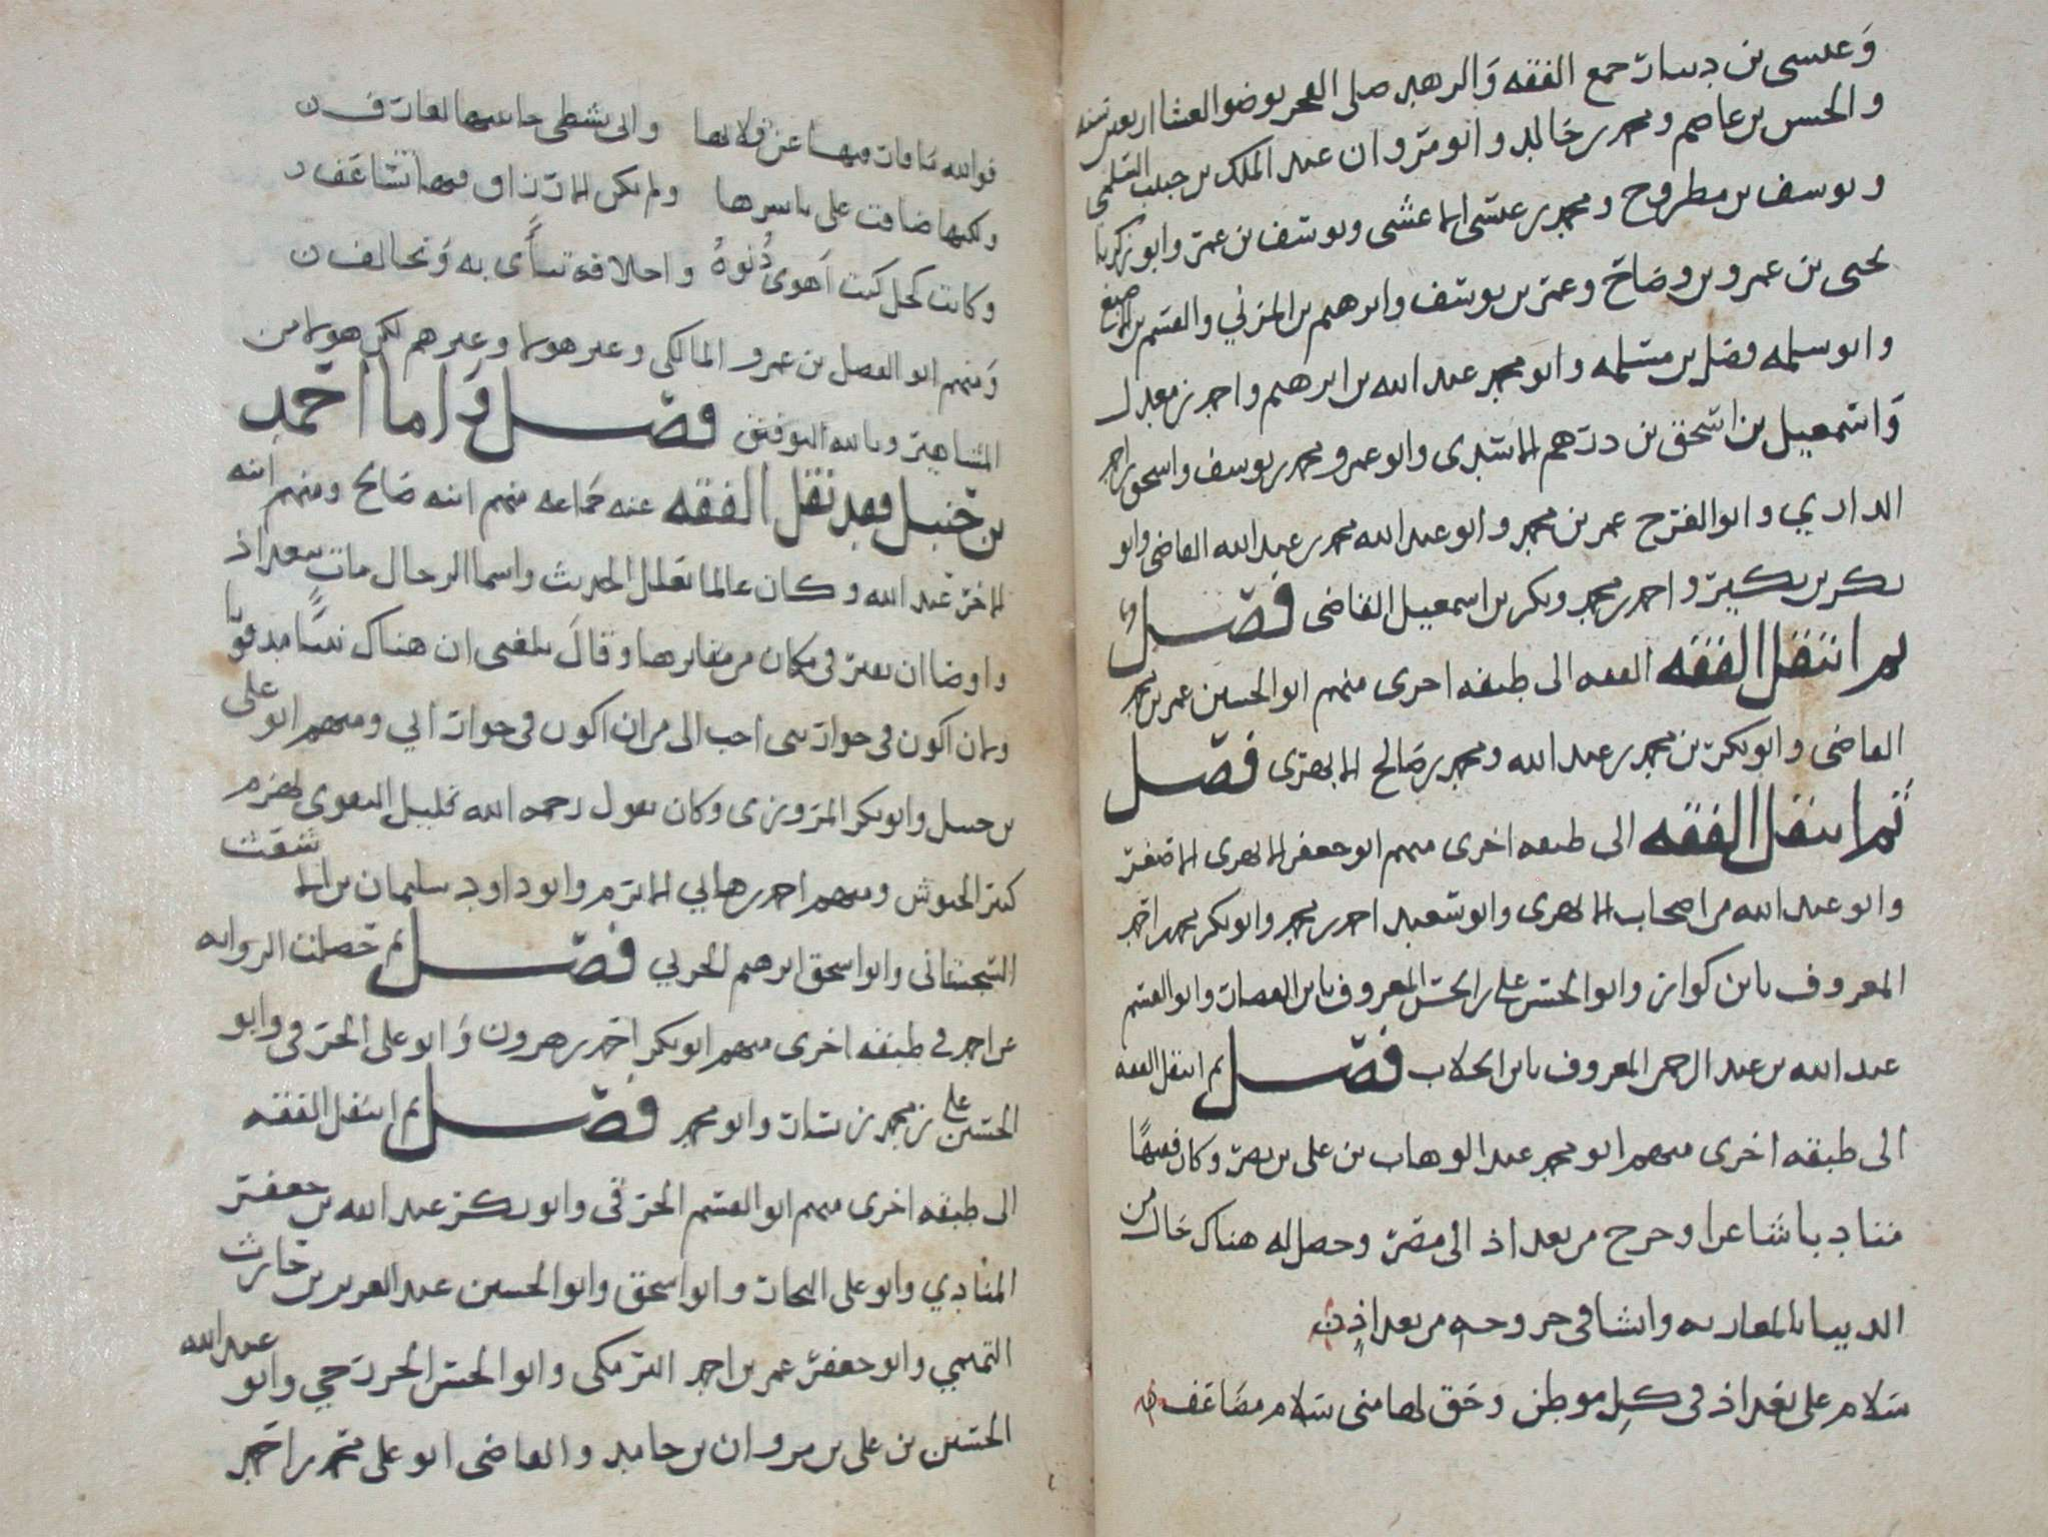 وعيسى بن دينار جمع الفقه والزهد صلى الفجر بوضو العشا اربعين سنه
والحسن بن عاصم ومحمد بن خالد وابو مروان عبد الملك بن حبيب السلمي
ويوسف بن مطروح ومحمد بن عيسى الاعشى ويوسف بن عمر وابو زكريا
يحيى بن عمر وبن وضاح وعمر بن يوسف وابرهيم بن المزني والقسم بن الاصبغ
وابو سلمه فضل بن مسلمه وابو محمد عبد الله بن ابرهيم واحمد بن معدل
واسمعيل بن اسحق بن درهم الاسدي وابو عمرو محمد بن يوسف واسحق بن احمد
الداري وابو الفرج عمر بن محمد وابو عبد الله محمد بن عبد الله القاضي وابو
بكر بن بكير واحمد بن محمد وبكر بن اسمعيل القاضي فصل
ثم انتقل الفقه الفقه الى طبقه اخرى منهم ابو الحسين عمر بن محمد
القاضي وابو بكر بن محمد بن عبد الله ومحمد بن صالح الابهري فصل
ثم انتقل الفقه الى طبقه اخرى منهم ابو جعفر الابهري الاصغر
وابو عبد الله من اصحاب الابهري وابو سعيد احمد بن محمد وابو بكر محمد بن احمد
المعروف بابن كواز وابو الحسن علي بن الحسن المعروف بابن القصار وابو القسم
عبد الله بن عبد الرحمن المعروف بابن الجلاب فصل ثم انتقل الفقه
الى طبقه اخرى منهم ابو محمد عبد الوهاب بن علي بن نصر وكان فقيها
متادبا شاعرا وخرج من بغداد الى مصر وحصل له هناك حال من
الدنيا بالمغاربه وانشا في خروجه من بغداد
سلام على بغداد في كل موطن وحق لها مني سلام مضاعف
فوالله ما فارقتها عن قلا لها واني بشطي جانبيها لعارف
ولكنها ضاقت علي باسرها ولم تكن الارزاق فيها تساعف
وكانت كخل كنت اهوى دنوه واخلاقه تنأى به وتخالف
ومنهم ابو الفضل بن عمرو المالكي وغير هولا وغيرهم لكن هولا من
المشاهير وبالله التوفيق فصل واما احمد
بن حنبل فقد نقل الفقه عنه جماعه منهم ابنه صالح ومنهم ابنه
الاخر عبد الله وكان عالما بعلل الحديث واسما الرجال مات ببغداد
واوصى ان يقبر في مكان من مقابرها وقال بلغني ان هناك نبيا مدفونا
ولان اكون في جوار نبي احب الي من ان اكون في جوار ابي ومنهم ابو علي
بن حنبل وابو بكر المروزي وكان يقول رحمه الله قليل التقوى يهزم
كثير الجيوش ومنهم احمد بن هاني الاثرم وابو داود سليمان بن الاشعث
السجستاني وابو اسحق ابرهيم الحربي فصل ثم حصلت الروايه
عن احمد في طبقه اخرى منهم ابو بكر احمد بن هرون وابو علي الخرقي وابو
الحسن علي بن محمد بن بشار وابو محمد فصل ثم انتقل الفقه
الى طبقه اخرى منهم ابو القسم الخرقي وابو بكر عبد الله بن جعفر
المنادي وابو علي النجاد وابو اسحق وابو الحسين عبد العزيز بن حارث
التميمي وابو جعفر عمر بن احمد البرمكي وابو الحسن الخردجي وابو عبد الله
الحسين بن علي بن مروان بن حامد والقاضي ابو علي محمد بن احمد